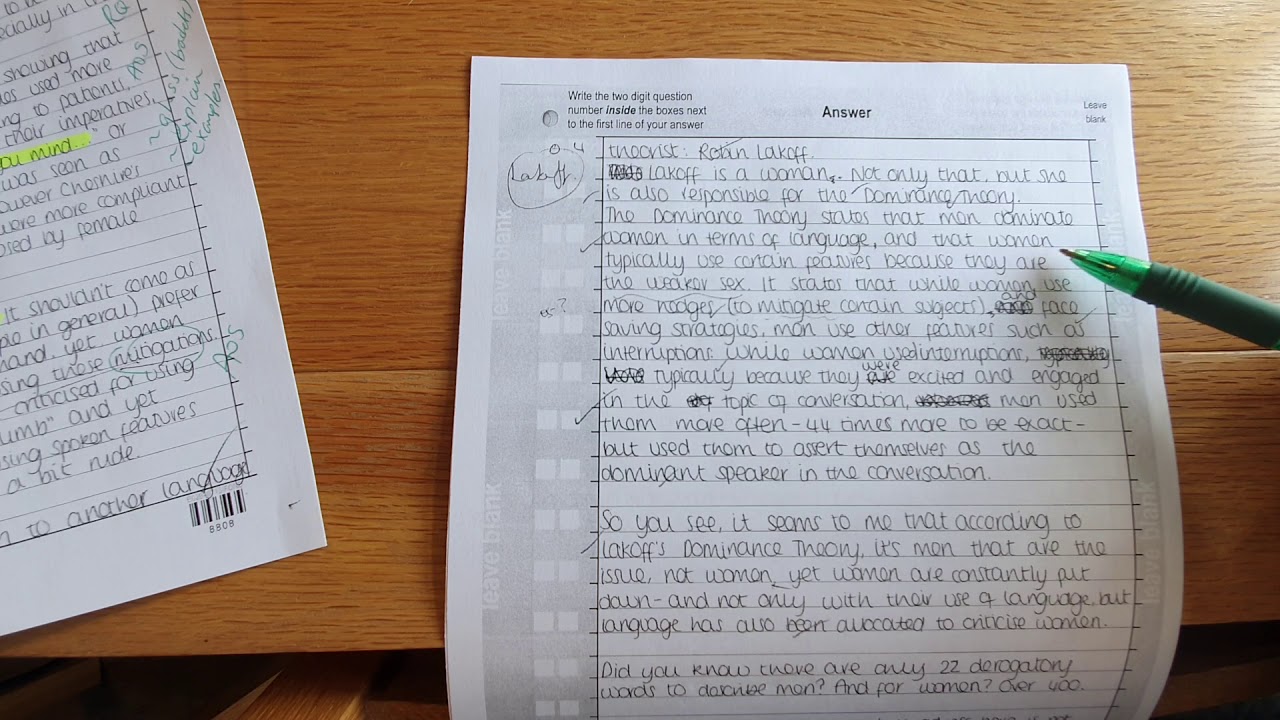 showing that
used more
to patients,
their imperatives.
you mind..." or
was seen as
However Cheshires
were more compliant
used by female
It shouldn't come as
in general) prefer
hand, yet, women
using these mitigations
criticised for using
dumb" and yet
using spoken features
a bit rude.
to another language
8808
AO5
(bootlets)
explain
examples
AO5
Write the two digit question
number inside the boxes next
to the first line of your answer
Answer
Leave
blank
0 4
Lakoff
theorist: Robin Lakoff.
Lakoff is a woman. Not only that, but she
is also responsible for the Dominance Theory.
The Dominance Theory states that men dominate
women in terms of language, and that women
typically use certain features because they are
the weaker sex. It states that while women use
more hedges (to mitigate certain subjects), and face
saving strategies, men use other features such as
interruptions. While women used interruptions,
typically because they were excited and engaged
in the topic of conversation, men used
them more often - 44 times more to be exact -
but used them to assert themselves as the
dominant speaker in the conversation.
So you see, it seems to me that according to
Lakoff's Dominance Theory, it's men that are the
issue, not women, yet women are constantly put
down - and not only with their use of language, but
language has also been allocated to criticise women.
Did you know there are only 22 derogatory
words to describe men? And for women? Over 400.
leave blank
leave blank
leave blank
leave blank